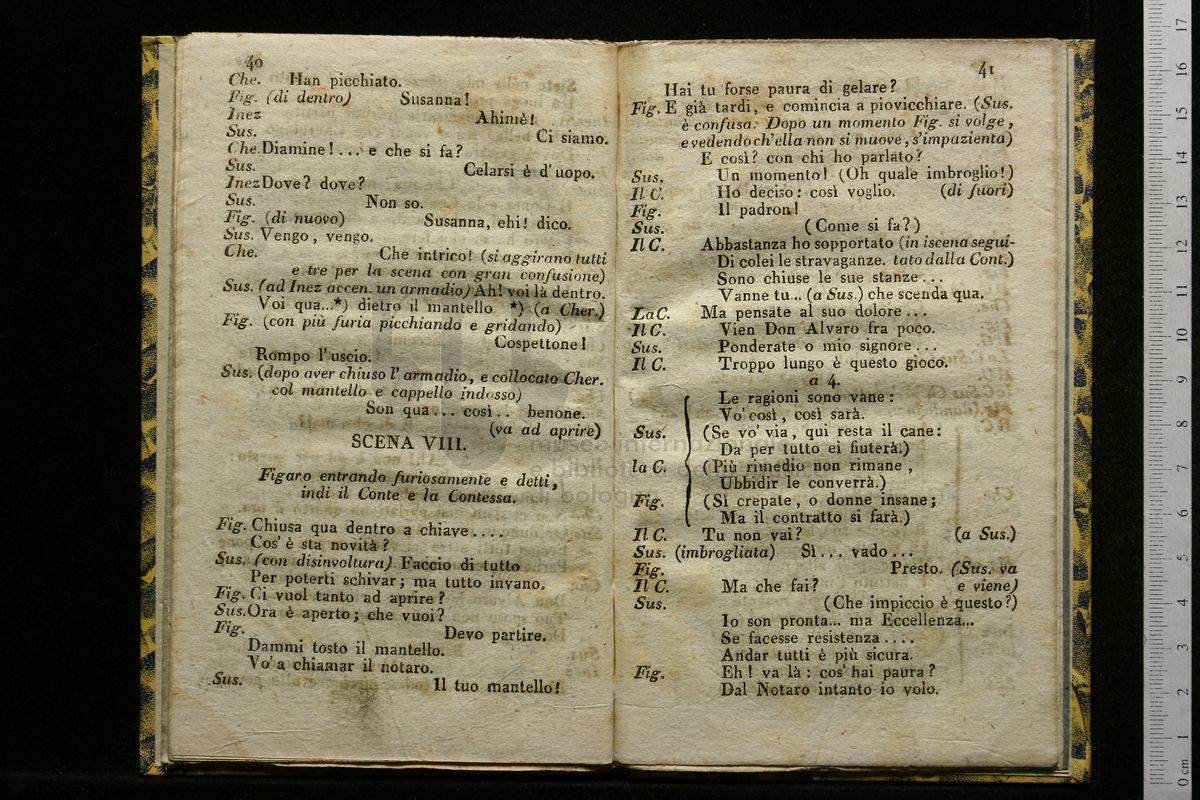 40
Che. Han picchiato.
Fig. (di dentro) Susanna!
Inez Ahimè!
Sus. Ci siamo.
Che. Diamine! ... e che si fa?
Sus. Celarsi è d'uopo.
Inez Dove? dove?
Sus. Non so.
Fig. (di nuovo) Susanna, ehi! dico.
Sus. Vengo, vengo.
Che. Che intrico! (si aggirano tutti
e tre per la scena con gran confusione)
Sus. (ad Inez accen. un armadio) Ah! voi là dentro.
Voi qua...*) dietro il mantello *) (a Cher.)
Fig. (con più furia picchiando e gridando)
Cospettone!
Rompo l'uscio.
Sus. (dopo aver chiuso l'armadio, e collocato Cher.
col mantello e cappello indosso)
Son qua... così.. benone.
(va ad aprire)
SCENA VIII.
Figaro entrando furiosamente e detti,
indi il Conte e la Contessa.
Fig. Chiusa qua dentro a chiave....
Cos'è sta novità?
Sus. (con disinvoltura) Faccio di tutto
Per poterti schivar; ma tutto invano.
Fig. Ci vuol tanto ad aprire?
Sus. Ora è aperto; che vuoi?
Fig. Devo partire.
Dammi tosto il mantello.
Vo'a chiamar il notaro.
Sus. Il tuo mantello!
41
Hai tu forse paura di gelare?
Fig. E già tardi, e comincia a piovicchiare. (Sus.
è confusa. Dopo un momento Fig. si volge,
e vedendo ch'ella non si muove, s'impazienta)
E così? con chi ho parlato?
Sus. Un momento! (Oh quale imbroglio!)
Il C. Ho deciso: così voglio. (di fuori)
Fig. Il padron!
Sus. (Come si fa?)
Il C. Abbastanza ho sopportato (in iscena segui-
Di colei le stravaganze. tato dalla Cont.)
Sono chiuse le sue stanze...
Vanne tu... (a Sus.) che scenda qua.
La C. Ma pensate al suo dolore...
Il C. Vien Don Alvaro fra poco.
Sus. Ponderate o mio signore...
Il C. Troppo lungo è questo gioco.
a 4.
Le ragioni sono vane:
Vo'così, così sarà.
Sus. (Se vo'via, qui resta il cane:
Da per tutto ei fiuterà.)
la C. (Più rimedio non rimane,
Ubbidir le converrà.)
Fig. (Sì crepate, o donne insane;
Ma il contratto si farà.)
Il C. Tu non vai? (a Sus.)
Sus. (imbrogliata) Sì... vado...
Fig. Presto. (Sus. va
Il C. Ma che fai? e viene)
Sus. (Che impiccio è questo?)
Io son pronta... ma Eccellenza...
Se facesse resistenza....
Andar tutti è più sicura.
Fig. Eh! va là: cos'hai paura?
Dal Notaro intanto io volo.